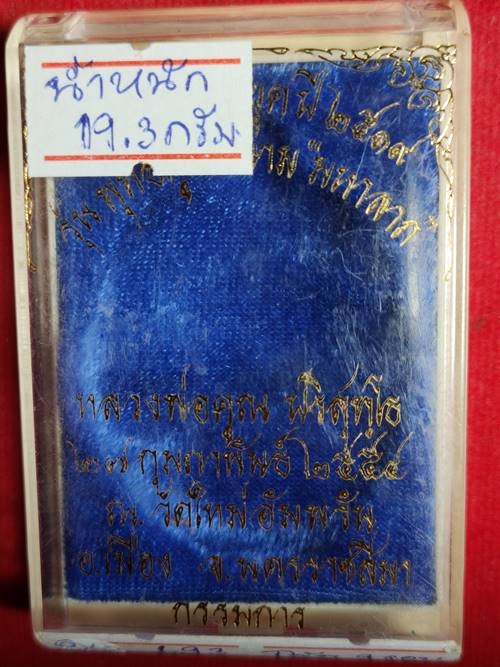 น้ำหนัก
19.3กรัม
ปี ๒๕๑๙
รุ่น มหาลาภ
หลวงพ่อคูณ ปริสุทฺโธ
๒๗ กุมภาพันธ์ ๒๕๕๔
ณ. วัดใหม่อัมพวัน
อ.เมือง จ.นครราชสีมา
กรรมการ